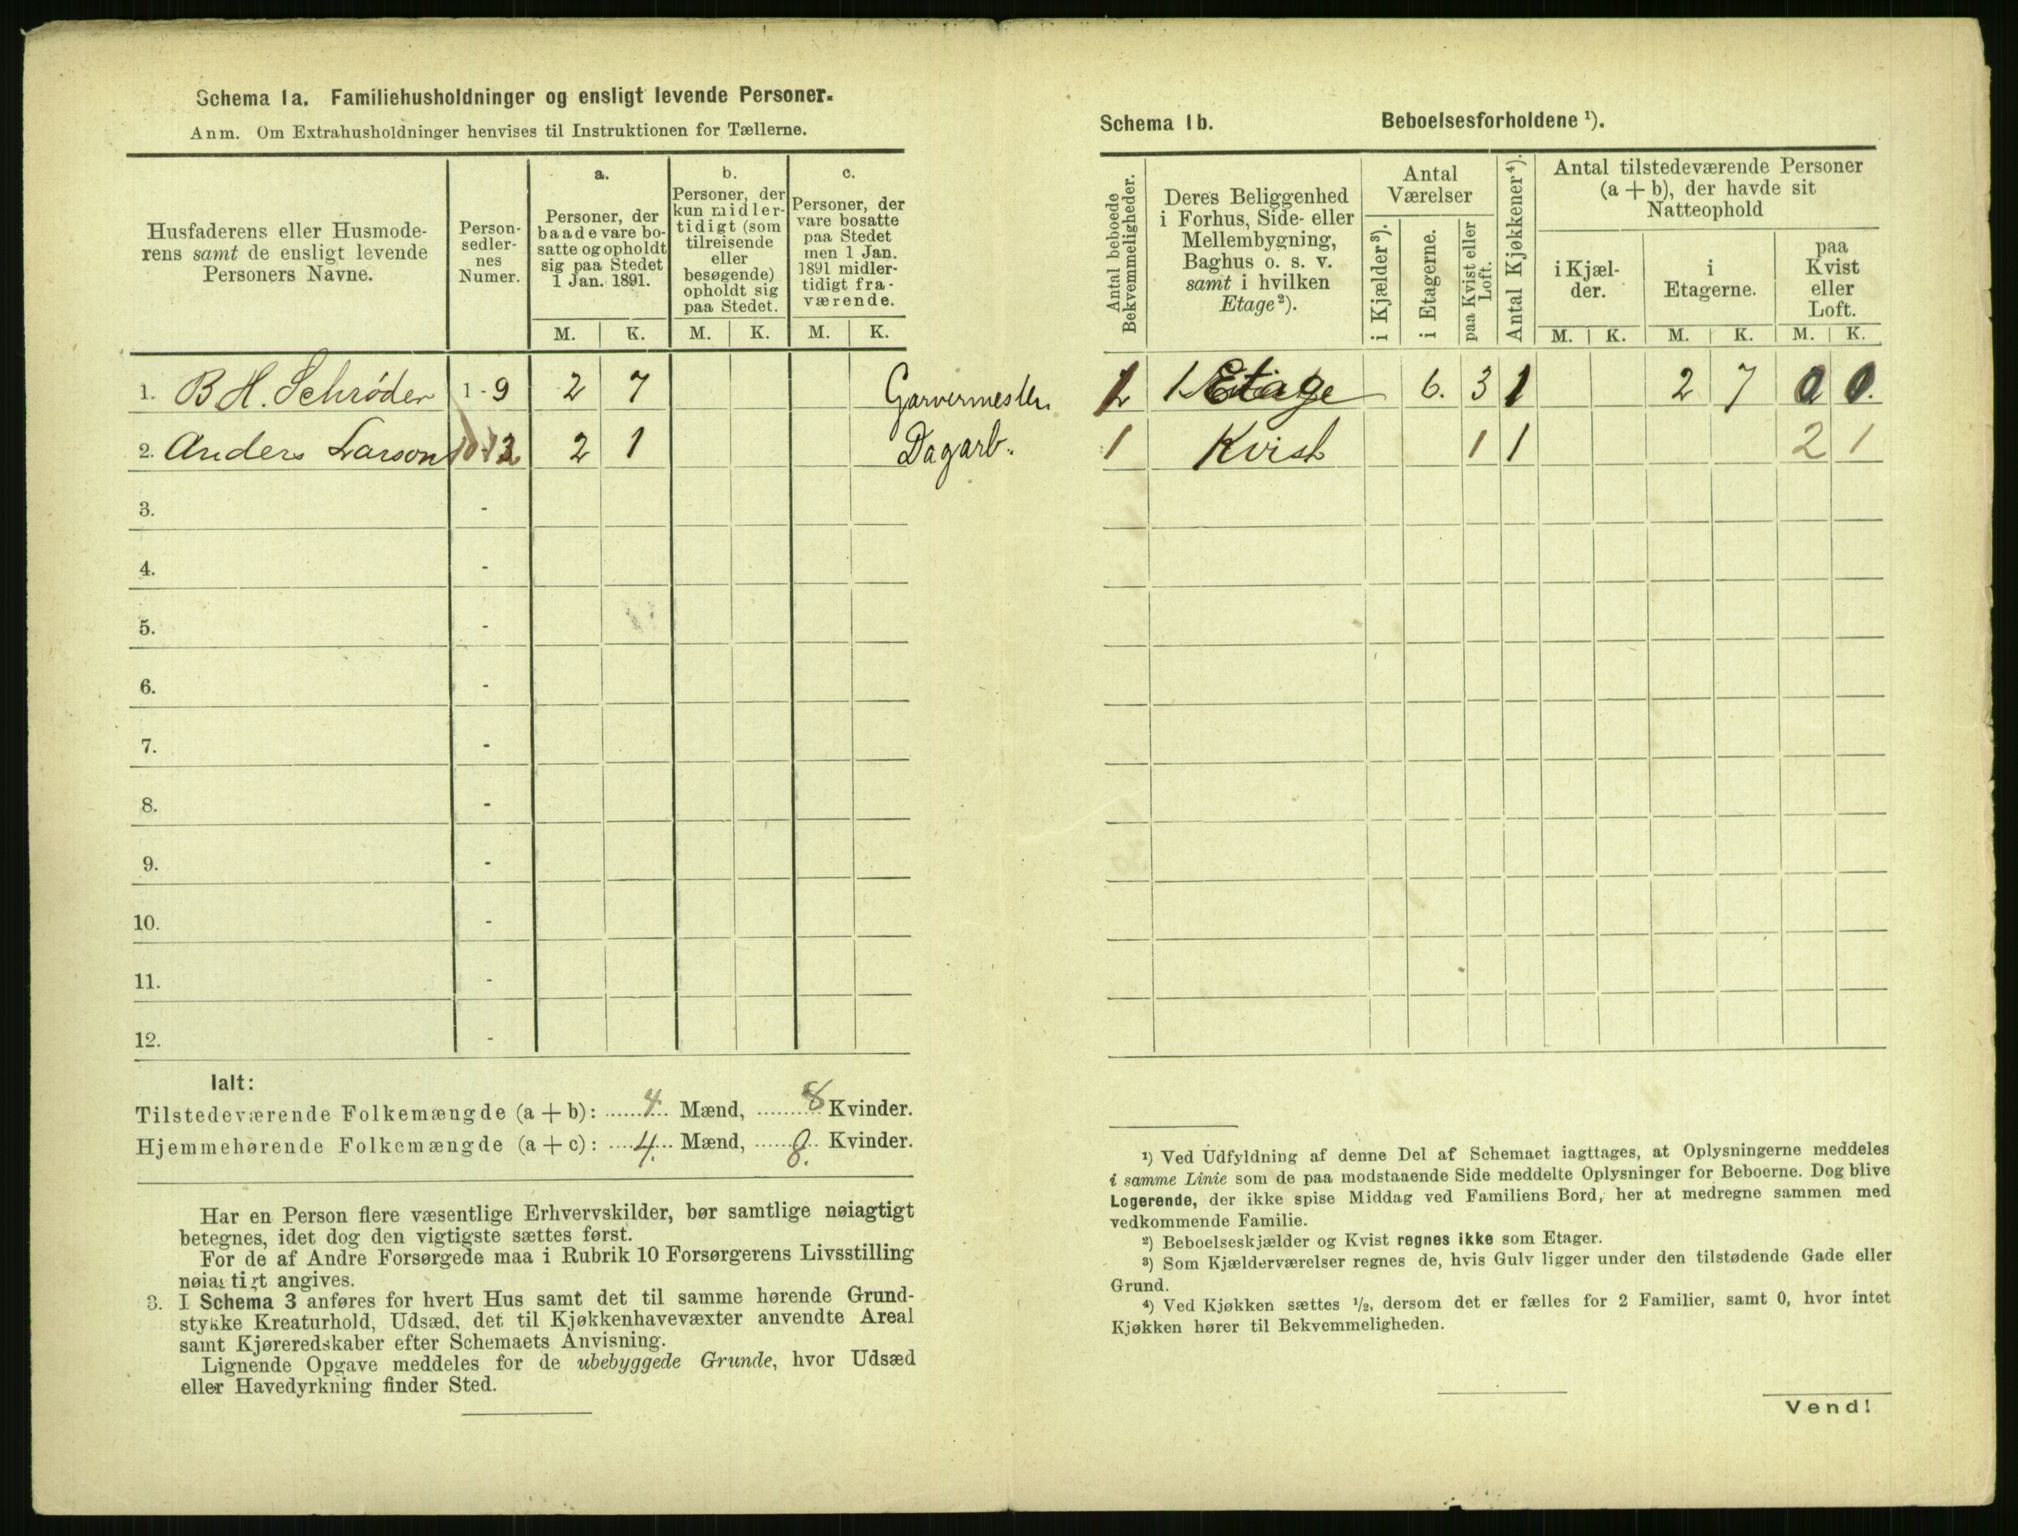 Schema 1 a. Familiehusholdninger og ensligt levende Personer.
Anm. Om Extrahusholdninger henvises til Instruktionen for Tællerne.
Husfaderens eller Husmode-
rens samt de ensligt levende
Personers Navne.
Person-
sedler-
nes
Numer.
a.
Personer, der
baade vare bo-
satte og opholdt
sig paa Stedet
1 Jan. 1891.
b.
Personer, der
kun midler-
tidigt (som
tilreisende
eller
besøgende)
opholdt sig
paa Stedet.
c.
Personer, der
vare bosatte
paa Stedet
men 1 Jan.
1891 midler-
tidigt fra-
værende.
M. K. M. K. M. K.
1. B H. Schrøder 1 - 9 2 7 Garvermester
2. Anders Larson 10-12 2 1 Dagarb.
3. -
4. -
5. -
6. -
7. -
8. -
9. -
10. -
11. -
12. -
Ialt:
Tilstedeværende Folkemængde (a + b): 4 Mænd, 8 Kvinder.
Hjemmehørende Folkemængde (a + c): 4. Mænd, 8. Kvinder.
Har en Person flere væsentlige Erhvervskilder, bør samtlige nøiagtigt
betegnes, idet dog den vigtigste sættes først.
For de af Andre Forsørgede maa i Rubrik 10 Forsørgerens Livsstilling
nøiagtigt angives.
3. I Schema 3 anføres for hvert Hus samt det til samme hørende Grund-
stykke Kreaturhold, Udsæd, det til Kjøkkenhavevæxter anvendte Areal
samt Kjøreredskaber efter Schemaets Anvisning.
Lignende Opgave meddeles for de ubebyggede Grunde, hvor Udsæd
eller Havedyrkning finder Sted.
Schema 1 b. Beboelsesforholdene ¹).
Antal beboede
Bekvemmeligheder.
Deres Beliggenhed
i Forhus, Side- eller
Mellembygning,
Baghus o. s. v.
samt i hvilken
Etage²).
Antal
Værelser
i Kjælder³).
i Etagerne.
paa Kvist eller
Loft.
Antal Kjøkkener⁴).
Antal tilstedeværende Personer
(a + b), der havde sit
Natteophold
i Kjæl-
der.
i
Etagerne.
paa
Kvist
eller
Loft.
M. K. M. K. M. K.
1 Etage 6. 3 1 2 7 0 0.
1 Kvist 1 1 2 1
¹) Ved Udfyldning af denne Del af Schemaet iagttages, at Oplysningerne meddeles
i samme Linie som de paa modstaaende Side meddelte Oplysninger for Beboerne. Dog blive
Logerende, der ikke spise Middag ved Familiens Bord, her at medregne sammen med
vedkommende Familie.
²) Beboelseskjælder og Kvist regnes ikke som Etager.
³) Som Kjælderværelser regnes de, hvis Gulv ligger under den tilstødende Gade eller
Grund.
⁴) Ved Kjøkken sættes ½, dersom det er fælles for 2 Familier, samt 0, hvor intet
Kjøkken hører til Bekvemmeligheden.
Vend!